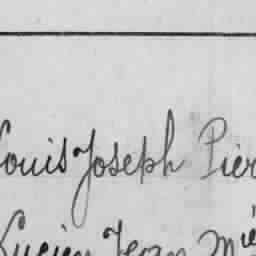 Louis Joseph Pier
Lucien Jean Mié